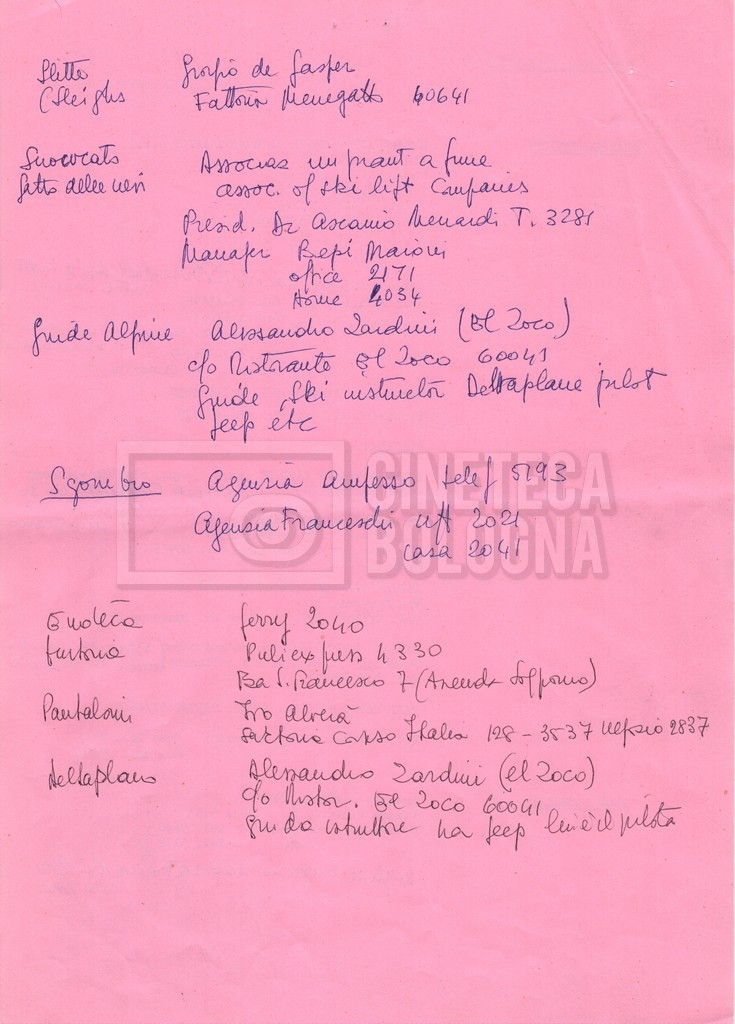 Slitte Giorgio de Gasper
(Sleighs Fattoria Menegatto 60641
Associaz impiant a fune
Gatto delle nevi assoc. of ski lift Companies
Presid. Dr Ascanio Menardi T. 3281
Manager Bepi Maioni
office 2171
Home 4034
Guide Alpine Alessandro Zardini (El Zoco)
c/o Ristorante El Zoco 60041
Guide, Ski instructor Deltaplane pilot
Jeep etc
Sgombro Agenzia Ampezzo telef 5193
Agenzia Franceschi uff 2021
casa 2041
CINETECA
BOLOGNA
Enoteca Gerry 2040
Puliexpress 4330
S. Francesco 7
Pantaloni Ivo Alverà
Sartoria Corso Italia 128 - 3537 2837
Deltaplano Alessandro Zardini (el Zoco)
c/o Ristor. El Zoco 60041
guida istruttore ha Jeep lui è il pilota